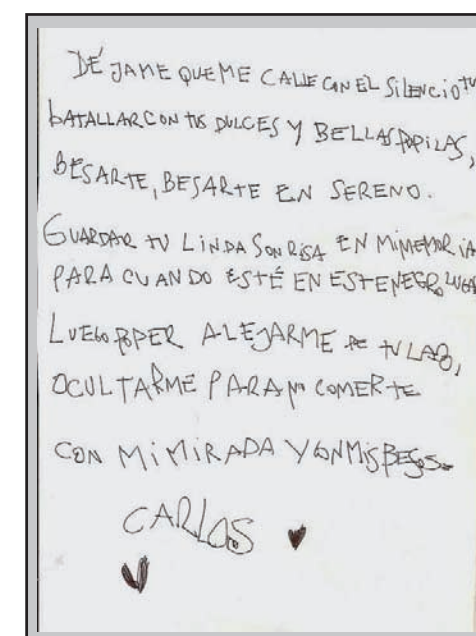 DÉJAME QUE ME CALLE CON EL SILENCIO TU
BATALLAR CON TUS DULCES Y BELLAS PUPILAS,
BESARTE, BESARTE EN SERENO.
GUARDAR TU LINDA SONRISA EN MI MEMORIA
PARA CUANDO ESTÉ EN ESTE NEGRO LUGAR
LUEGO PODER ALEJARME DE TU LADO,
OCULTARME PARA NO COMERTE
CON MI MIRADA Y CON MIS BESOS.
CARLOS